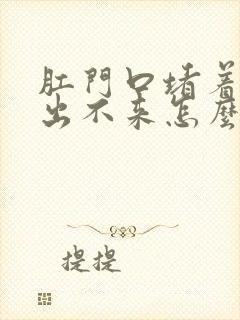 肛門口堵着
出不来怎麼
提提